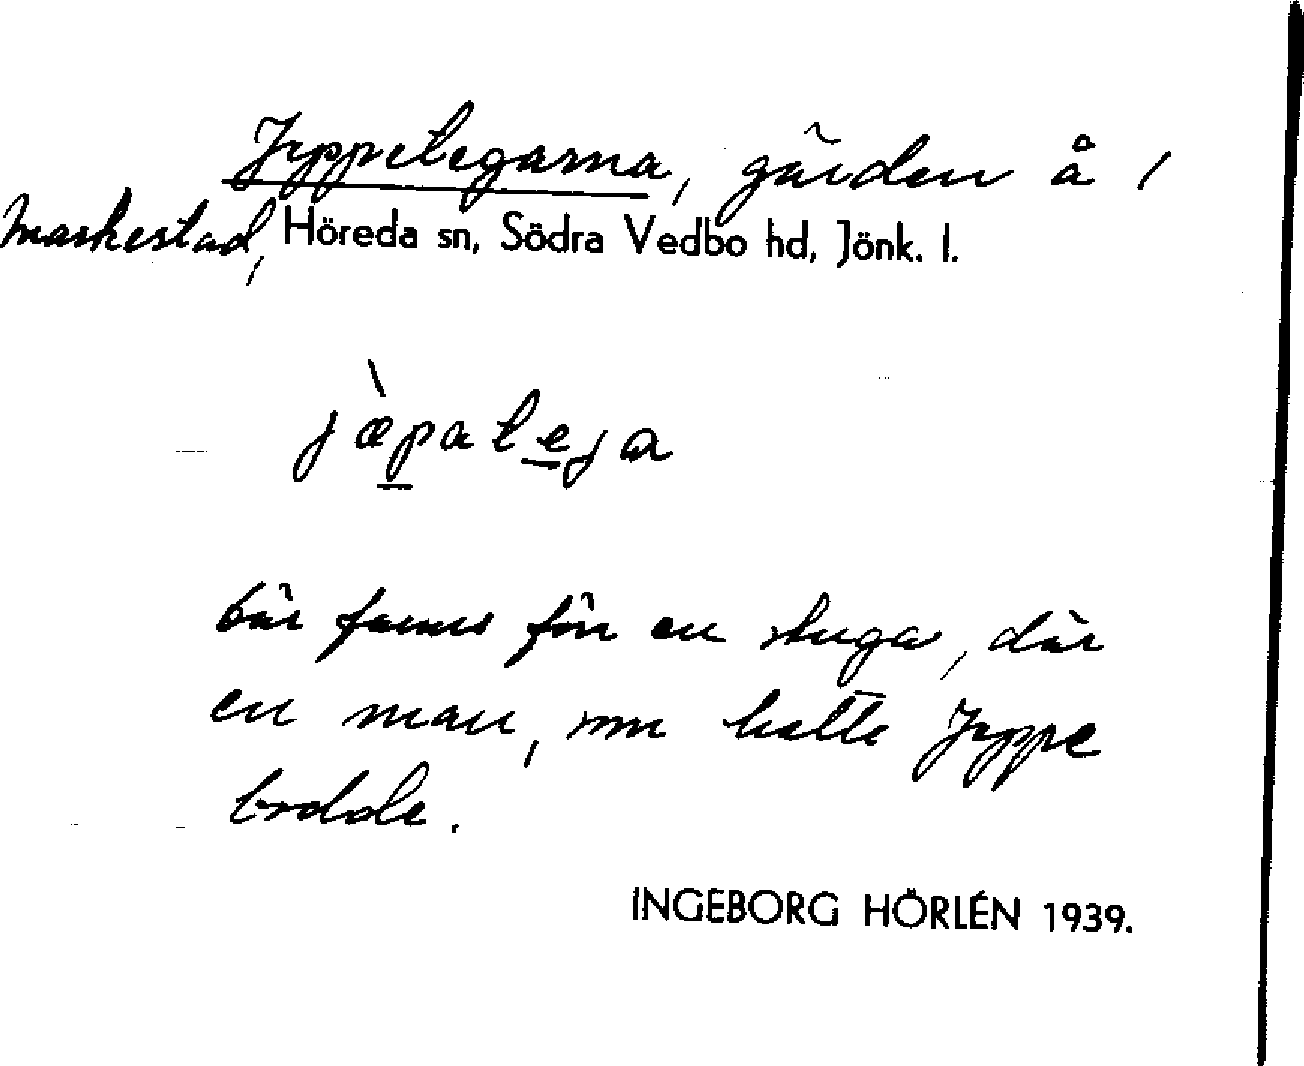 Jeppelegarna, gärden å /
Markestad, Höreda sn, Södra Vedbo hd, Jönk. l.
jæ̀palеja
Där fanns förr en stuga, där
en man, som hette Jeppe
bodde.
INGEBORG HÖRLÉN 1939.